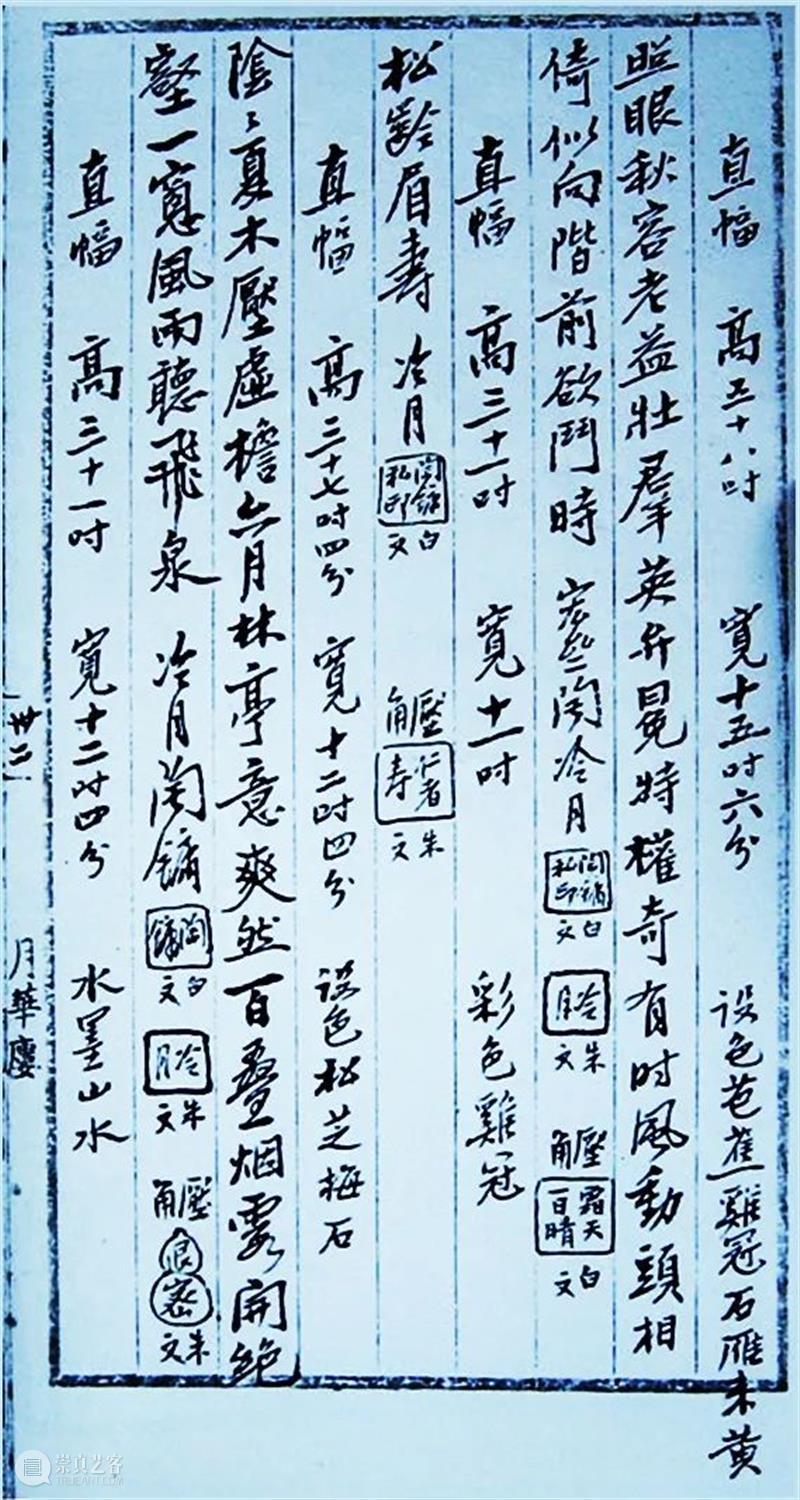 直幅 高五十八吋 寬十五吋六分 设色芭蕉雞冠石雁未黄
照眼秋容老益壮羣英弁冕特權奇有时風動頭相
倚似向階前欲鬥時 陶冷月 陶鏞私印 白文 冷月 朱文 壓角 霜天百晴 白文
直幅 高三十一吋 寬十一吋 彩色雞冠
松齡眉壽 冷月 陶鏞私印 白文 壓角 仁者寿 朱文
直幅 高三十七吋四分 寬十二吋四分 设色松芝梅石
陰〻夏木壓虛檐六月林亭意爽然百疊烟雲開絶
壑一窻風雨聽飛泉 冷月陶鏞 陶鏞 白文 冷月 朱文 壓角 宏 朱文
直幅 高三十一吋 寬十二吋四分 水墨山水
卅二 月華廔
崇真艺客
TRUEART.COM